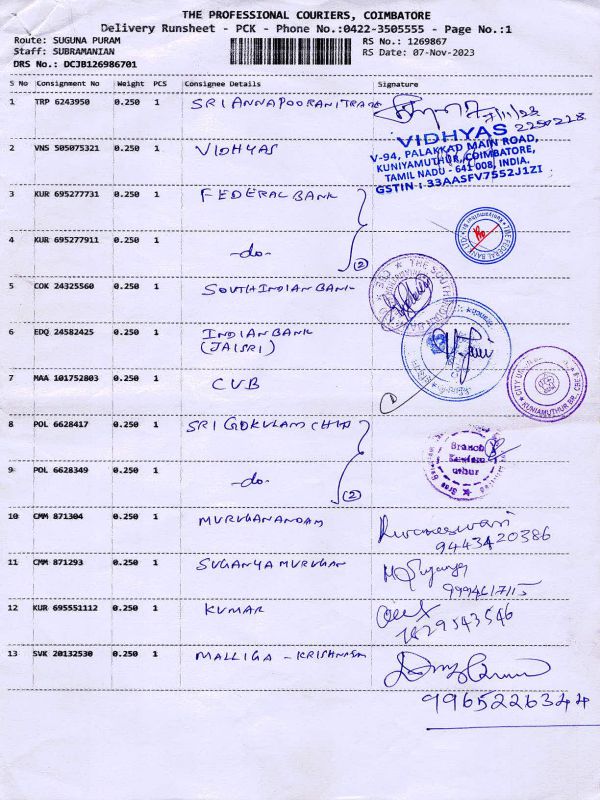 THE PROFESSIONAL COURIERS, COIMBATORE
Delivery Runsheet - PCK - Phone No.:0422-3505555 - Page No.:1
Route: SUGUNA PURAM RS No.: 1269867
Staff: SUBRAMANIAN RS Date: 07-Nov-2023
DRS No.: DCJB126986701
S No Consignment No Weight PCS Consignee Details Signature
1 TRP 6243950 0.250 1 SRI ANNAPOORANI TRADE
7/11/23
2250228
2 VNS 505075321 0.250 1 VIDHYAS
VIDHYAS
V-94, PALAKKAD MAIN ROAD,
KUNIYAMUTHUR, COIMBATORE,
TAMIL NADU - 641 008, INDIA.
GSTIN : 33AASFV7552J1ZI
3 KUR 695277731 0.250 1 FEDERAL BANK
THE FEDERAL BANK LTD
4 KUR 695277911 0.250 1 -do- (2)
5 COK 24325560 0.250 1 SOUTH INDIAN BANK
THE SOUTH
6 EDQ 24582425 0.250 1 INDIAN BANK
(JAISRI)
7 MAA 101752803 0.250 1 CUB
CITY UNION
KUNIAMUTHUR BR.
8 POL 6628417 0.250 1 SRI GOKULAM CHIT
Branch
9 POL 6628349 0.250 1 -do- (2)
10 CMM 871304 0.250 1 MURUGANANDAM
9443420386
11 CMM 871293 0.250 1 SUGANYA MURUGAN
12 KUR 695551112 0.250 1 KUMAR
7429543546
13 SVK 20132530 0.250 1 MALLIGA - KRISHNASM
9965226344